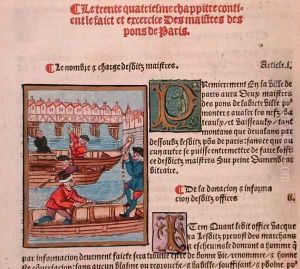 Le trente quatriesme chappitre conti-
ent le faict et exercice Des maistres des
pons de Paris.
Le nombre & charge desditz maistres. Article.i.
PRemierement En la Ville de
paris aura Deux maistres
des pons de ladicte Ville po'
monter & aualer les nefz, ba
teaulx, et Vaisseaulx, tant
montans que deualans par
dessoubz lesditz pons de paris: sans ce que au
cun autre se puisse entremettre de faire loffice
desditz maistres Sur peine Damende ar
bitraire.
De la donacion & informa
cion desditz offices .ii.
ITem Quant ledit office Vacque
ra Lesditz preuost des marchans
et escheuins se donront a homme q
par information deuement faicte sera trouue estre de bonne